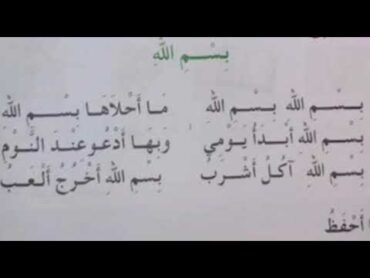 بِسْمِ اللهِ
بِسْمِ اللهِ بِسْمِ اللهِ مَا أَحْلَاهَا بِسْمِ اللهِ
بِسْمِ اللهِ أَبْدَأُ يَوْمِي وَبِهَا أَدْعُو عِنْدَ النَّوْمِ
بِسْمِ اللهِ آكُلُ أَشْرَبُ بِسْمِ اللهِ أَخْرُجُ أَلْعَبُ
أَحْفَظُ